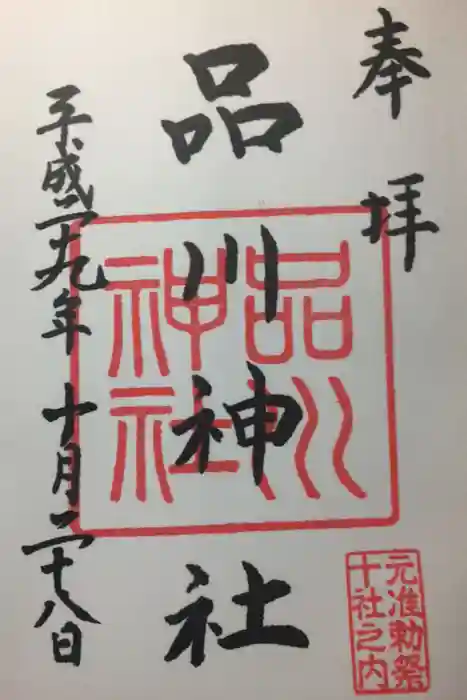 奉拝
品川神社
品川神社
平成二十九年十月二十八日
元准勅祭
十社之内